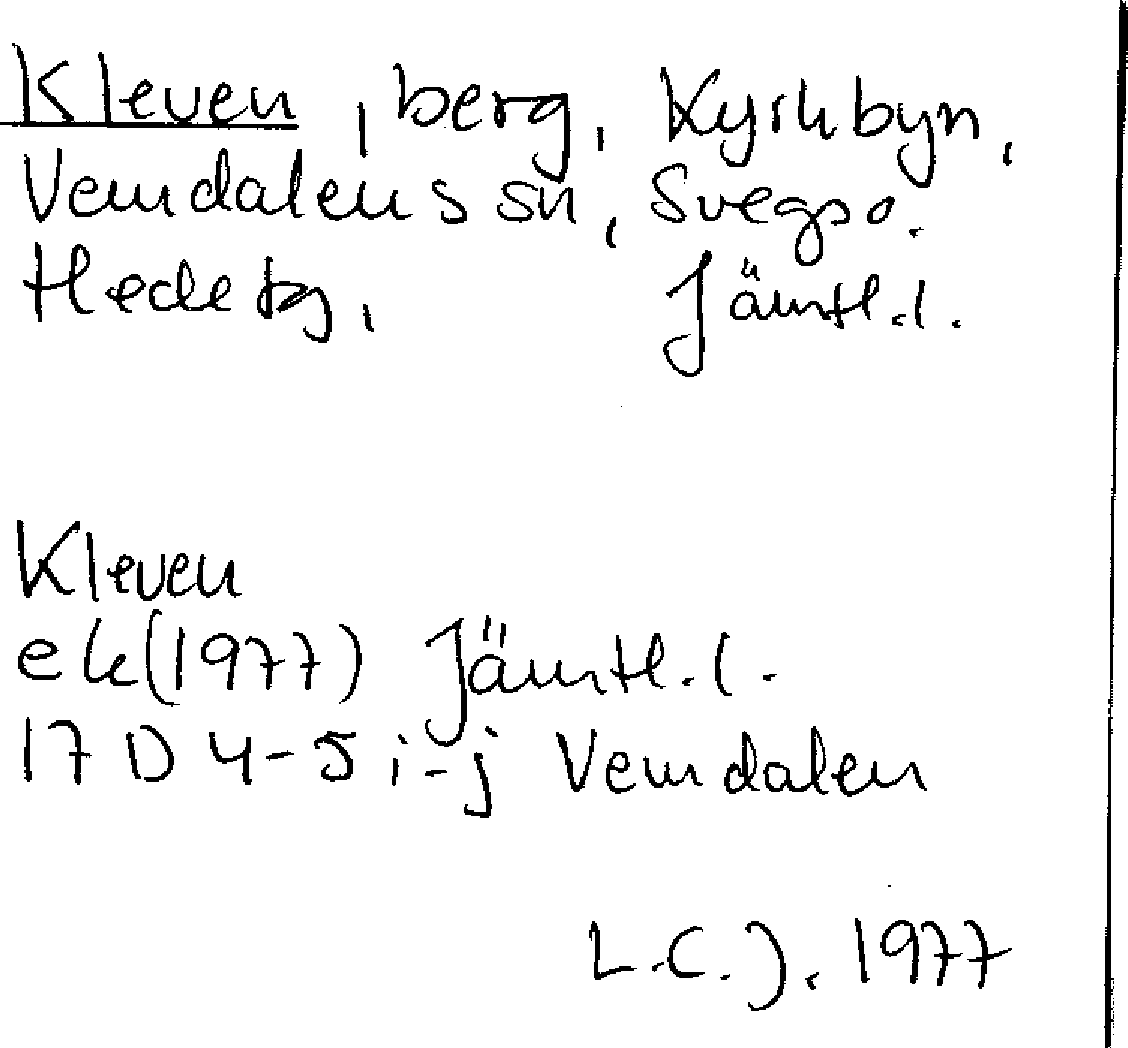 Kleven, berg, Kyrkbyn,
Vemdalens sn, Svegs po.
Hede tg, Jämtl.l.
Kleven
ek(1977) Jämtl.l.
17 D 4-5 i-j Vemdalen
L.C.J. 1977